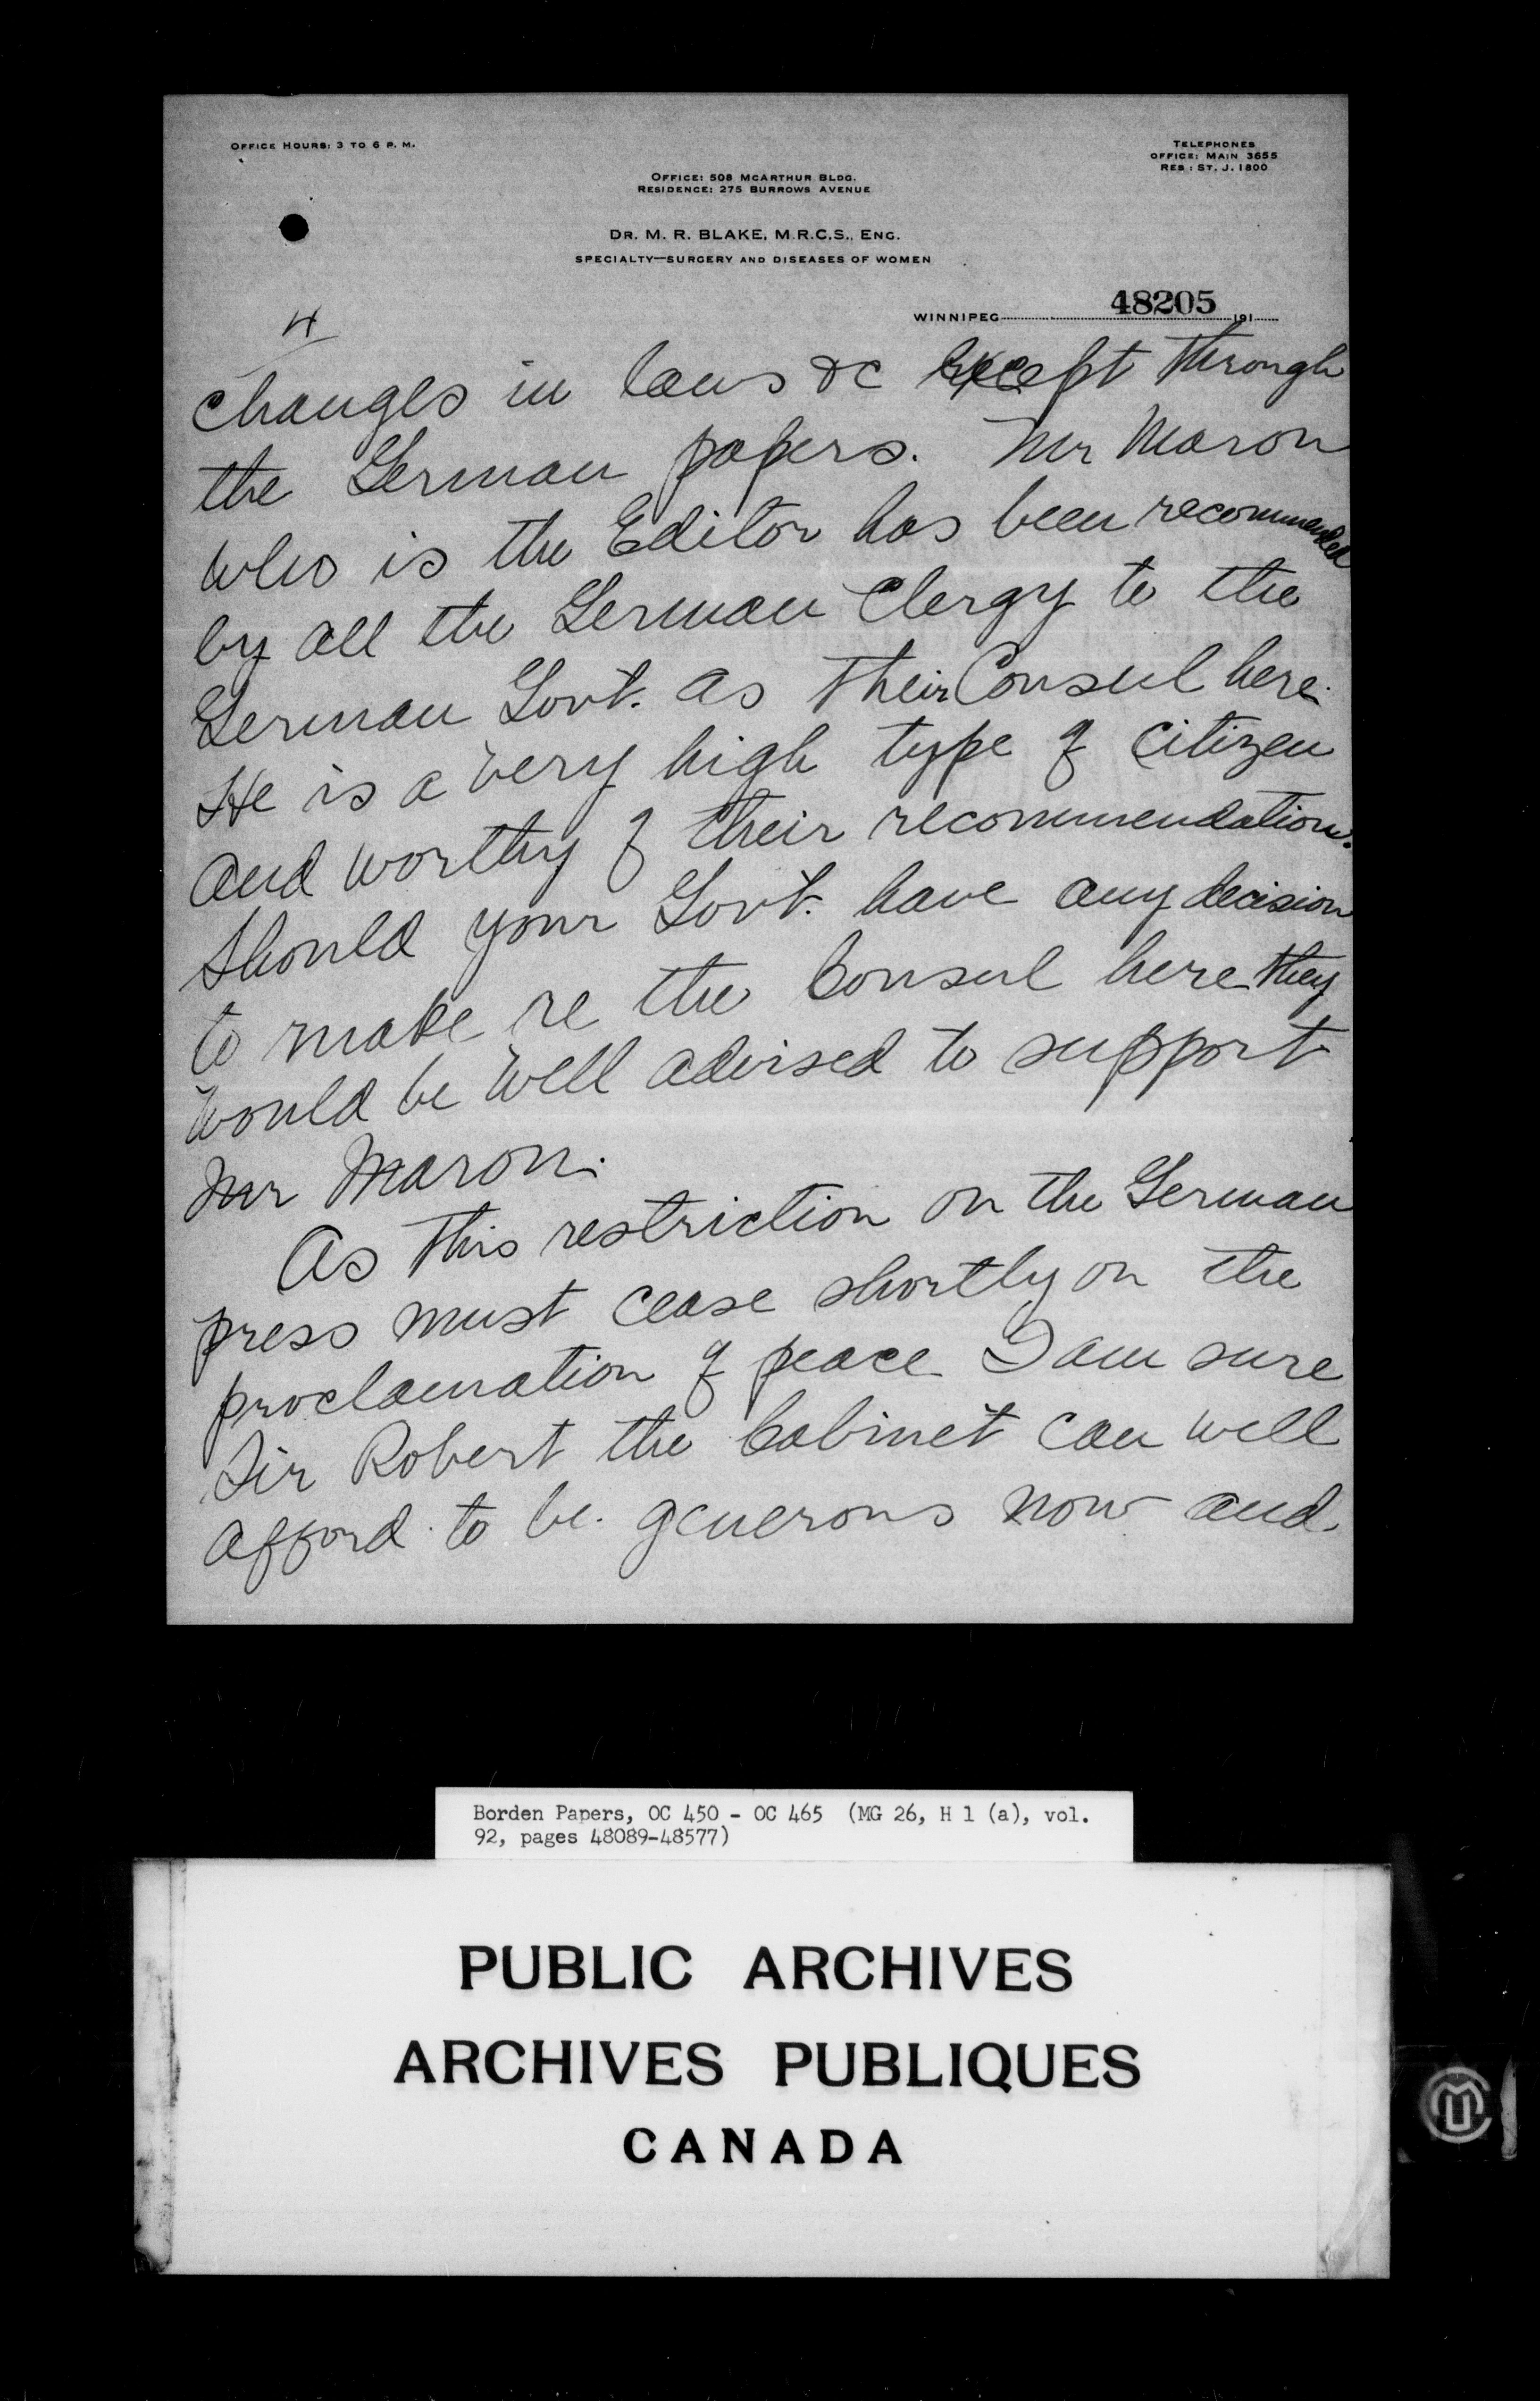 OFFICE HOURS: 3 TO 6 P. M.
TELEPHONES
OFFICE: MAIN 3655
RES: ST. J. 1800
OFFICE: 508 MCARTHUR BLDG.
RESIDENCE: 275 BURROWS AVENUE
DR. M. R. BLAKE, M.R.C.S., ENG.
SPECIALTY—SURGERY AND DISEASES OF WOMEN
WINNIPEG 48205 191
4
changes in laws &c except through
the German papers. Mr Maron
who is the Editor has been recommended
by all the German Clergy to the
German Govt. as their Consul here.
He is a very high type of citizen
and worthy of their recommendation.
Should your Govt. have any decision
to make re the Consul here they
would be well advised to support
Mr Maron.
As this restriction on the German
press must cease shortly on the
proclamation of peace I am sure
Sir Robert the Cabinet can well
afford to be generous now and
Borden Papers, OC 450 - OC 465 (MG 26, H 1 (a), vol.
92, pages 48089-48577)
PUBLIC ARCHIVES
ARCHIVES PUBLIQUES
CANADA